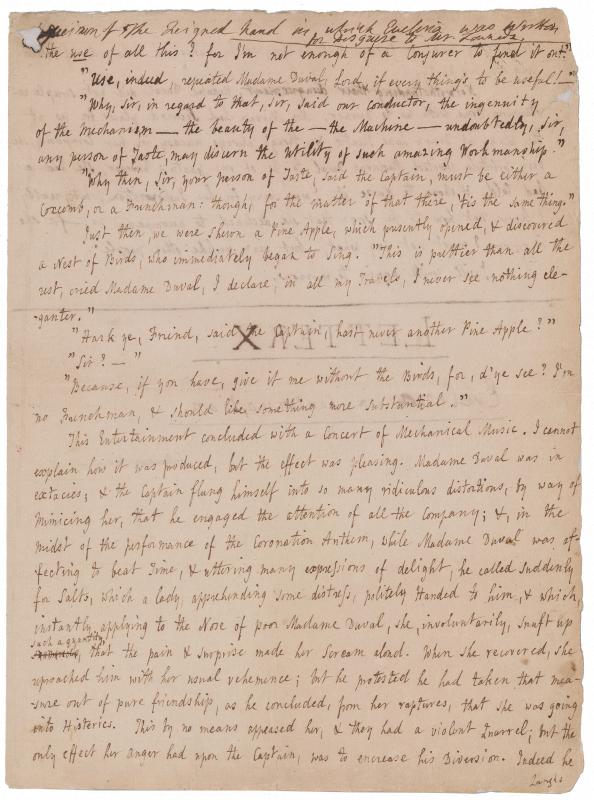 Specimen of the Feigned hand in which Evelina was written
for disguise to Mr. Lowndes.
the use of all this? for I'm not enough of a Conjurer to find it out."
"Use, indeed, repeated Madame Duval, Lord, if every thing's to be useful!—"
"Why, Sir, in regard to that, Sir, said our conductor, the ingenuity
of the Mechanism — the beauty of the — the Machine — undoubtedly, Sir,
any person of Taste, may discern the utility of such amazing Workmanship."
"Why then, Sir, your person of Taste, said the Captain, must be either a
Coxcomb, or a Frenchman: though, for the matter of that there, 'tis the same thing."
Just then, we were shewn a Pine Apple, which presently opened, & discovered
a Nest of Birds, who immediately began to Sing. "This is prettier than all the
rest, cried Madame Duval, I declare, in all my Travels, I never see nothing ele-
-ganter."
"Hark ye, Friend, said the Captain, hast never another Pine Apple?"
"Sir? — "
"Because, if you have, give it me without the Birds, for, d'ye see? I'm
no Frenchman, & should like something more substantial."
This Entertainment concluded with a Concert of Mechanical Music. I cannot
explain how it was produced, but the effect was pleasing. Madame Duval was in
extacies; & the Captain flung himself into so many ridiculous distortions, by way of
mimicing her, that he engaged the attention of all the Company; &, in the
midst of the performance of the Coronation Anthem, while Madame Duval was af-
-fecting to beat Time, & uttering many expressions of delight, he called suddenly
for Salts, which a lady, apprehending some distress, politely Handed to him, & which,
instantly applying to the Nose of poor Madame Duval, she, involuntarily, snuft up
such a quantity,
that the pain & surprise made her Scream aloud. When she recovered, she
reproached him with her usual vehemence; but he protested he had taken that mea-
-sure out of pure friendship, as he concluded, from her raptures, that she was going
into Hysterics. This by no means appeased her, & they had a violent Quarrel; but the
only effect her anger had upon the Captain, was to encrease his Diversion. Indeed he
Laughs